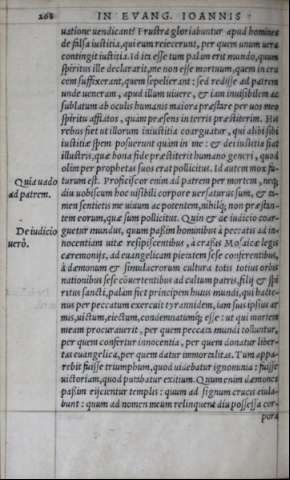 208 IN EVANG. IOANNIS
uatione uendicant? Frustra gloriabuntur apud homines
de falsa iustitia, qui eum reiecerunt, per quem unum uera
contingit iustitia. Id ita esse tum palam erit mundo, quum
spiritus ille declararit, me non esse mortuum, quem in cru
cem suffixerant, quem sepelierant: sed redisse ad patrem
unde ueneram, apud illum uiuere, & iam inuisibilem ac
sublatum ab oculis humanis maiora præstare per uos meo
spiritu afflatos, quam præsens in terris præstiterim. His
rebus fiet ut illorum iniustitia coarguatur, qui alibi sibi
iustitiæ spem posuerunt quàm in me: & dei iustitia fiat
illustris, quæ bona fide præstiterit humano generi, quod
olim per prophetas suos erat pollicitus. Id autem mox fu
Quia uado
ad patrem.
turum est. Proficiscor enim ad patrem per mortem, neq;
diu uobiscum hoc uisibili corpore uersaturus sum, & ta-
men sentietis me uiuum ac potentem, nihilq; non præstan-
tem eorum, quæ sum pollicitus. Quin & de iudicio coar-
De iudicio
uerò.
guetur mundus, quum passim hominibus à peccatis ad in-
nocentiam uitæ resipiscentibus, à crassis Mosaicæ legis
cæremonijs, ad euangelicam pietatem sese conferentibus,
à dæmonum & simulacrorum cultura totis totius orbis
nationibus sese conuertentibus ad cultum patris, filij & spi
ritus sancti, palam fiet principem huius mundi, qui hacte-
nus per peccatum exercuit tyrannidem, iam suis ipsius ar-
mis, uictum, eiectum, condemnatumq; esse: ut qui mortem
meam procurauerit, per quem peccata mundi tolluntur,
per quem confertur innocentia, per quem donatur liber-
tas euangelica, per quem datur immortalitas. Tum appa-
rebit fuisse triumphum, quod uidebatur ignominia: fuisse
uictoriam, quod putabatur exitium. Quum enim dæmones
passim eijcientur templis: quum ad signum crucis eiula-
bunt: quum ad nomen meum relinquent diu possessa cor-
pora